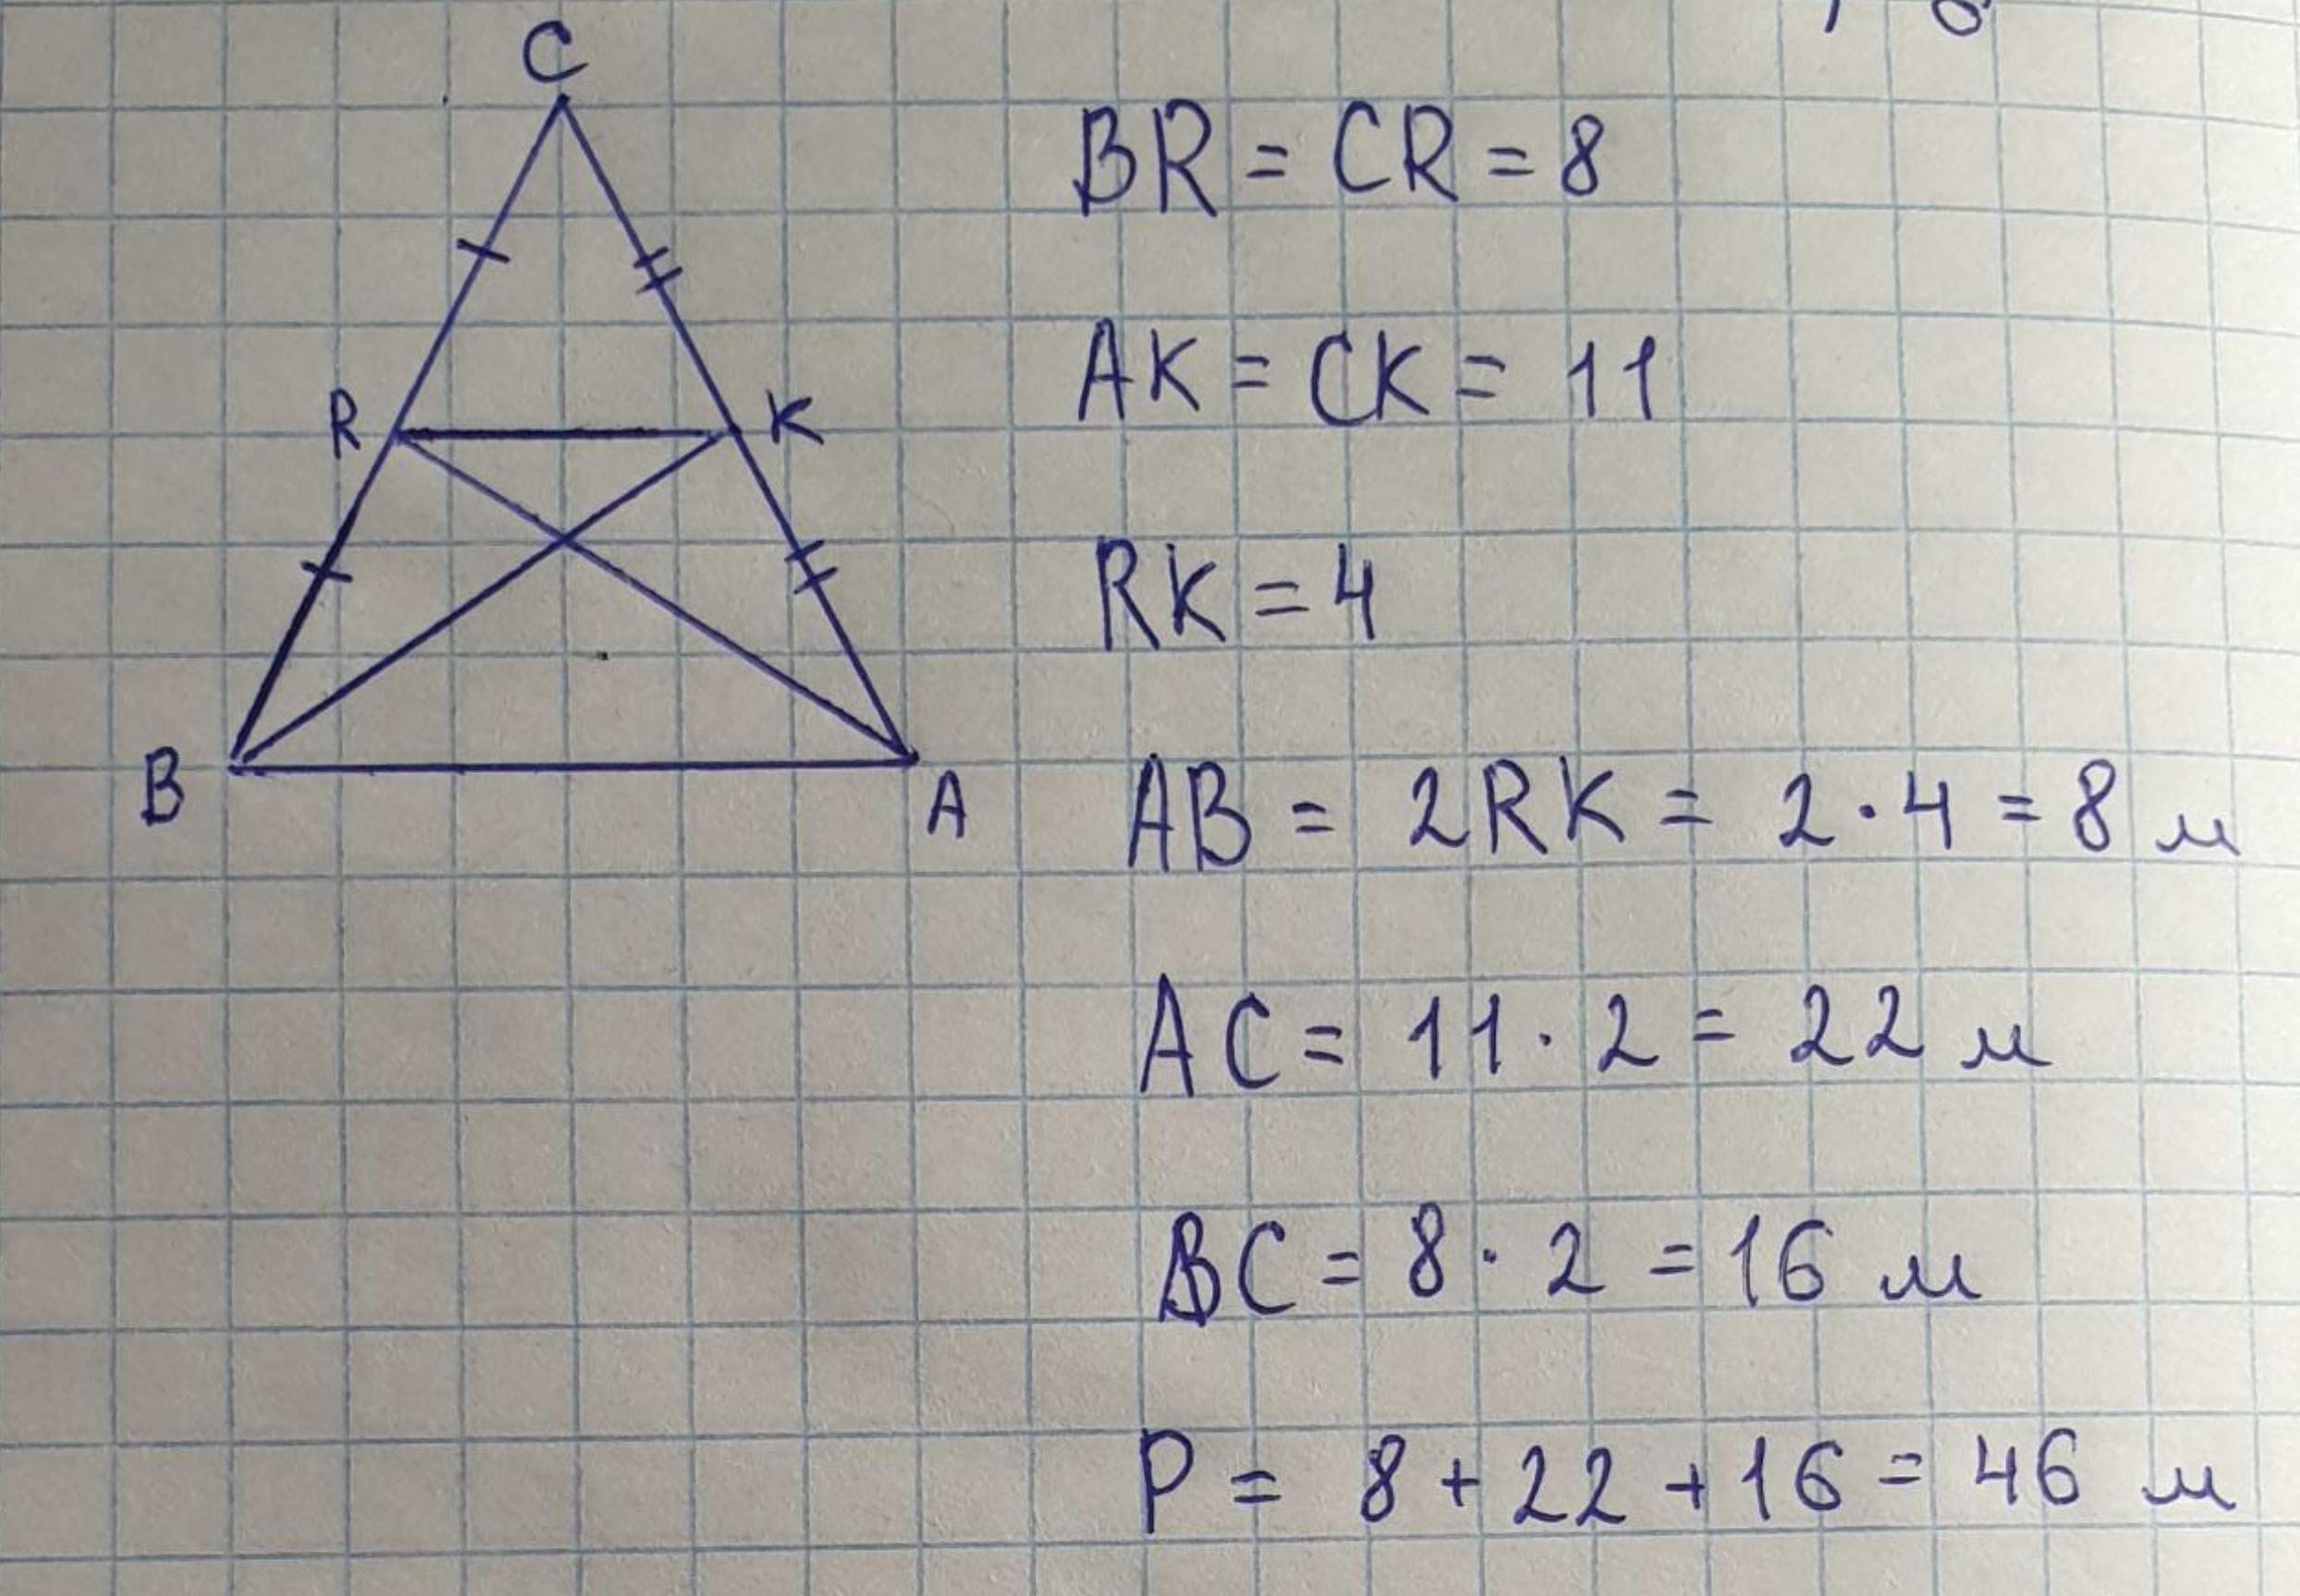 C
R
K
B
A
BR = CR = 8
AK = CK = 11
RK = 4
AB = 2RK = 2 · 4 = 8 м
AC = 11 · 2 = 22 м
BC = 8 · 2 = 16 м
P = 8 + 22 + 16 = 46 м